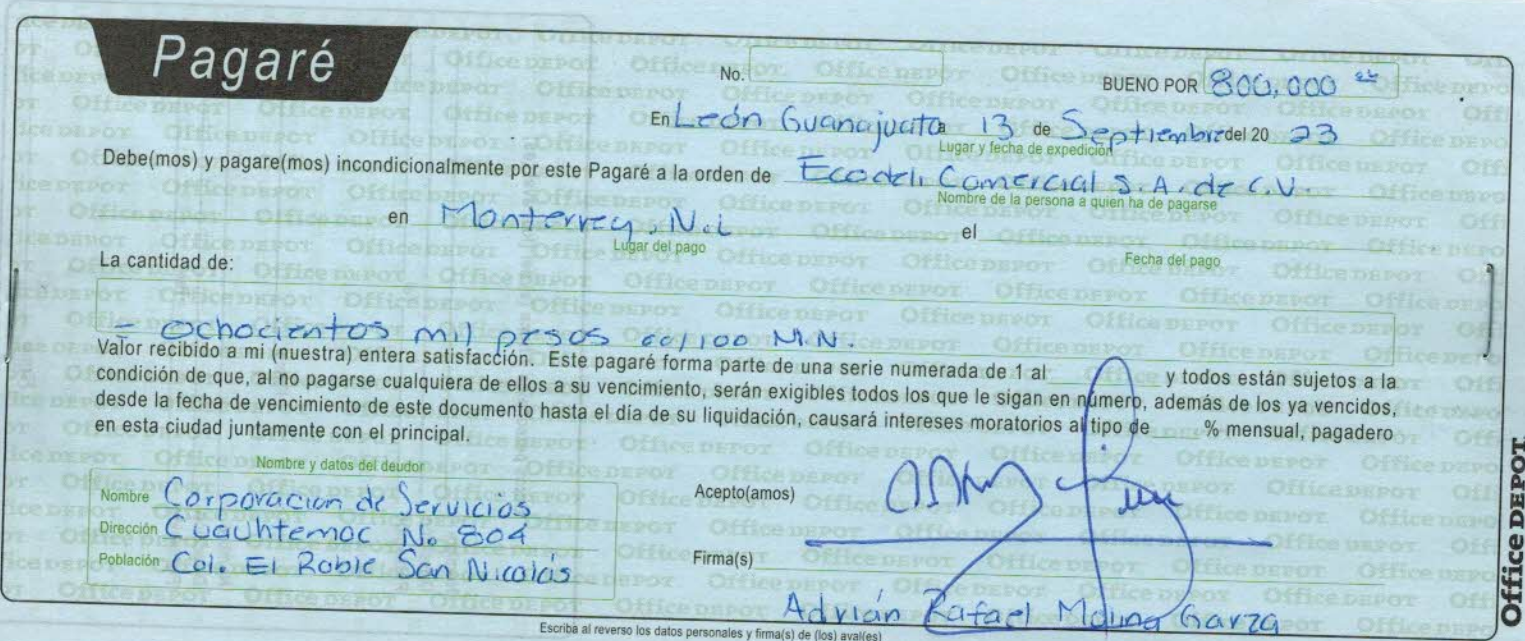 Pagaré
No. BUENO POR 800,000 00
En León Guanajuato a 13 de Septiembre del 20 23
Lugar y fecha de expedición
Debe(mos) y pagare(mos) incondicionalmente por este Pagaré a la orden de Ecodeli Comercial S.A. de C.V.
Nombre de la persona a quien ha de pagarse
en Monterrey, N.L el
Lugar del pago Fecha del pago
La cantidad de:
- Ochocientos mil pesos 00/100 M.N.
Valor recibido a mi (nuestra) entera satisfacción. Este pagaré forma parte de una serie numerada de 1 al y todos están sujetos a la
condición de que, al no pagarse cualquiera de ellos a su vencimiento, serán exigibles todos los que le sigan en número, además de los ya vencidos,
desde la fecha de vencimiento de este documento hasta el día de su liquidación, causará intereses moratorios al tipo de % mensual, pagadero
en esta ciudad juntamente con el principal.
Nombre y datos del deudor
Nombre Corporacion de Servicios
Dirección Cuauhtemoc No 804
Población Col. El Roble San Nicolás
Acepto(amos)
Firma(s)
Adrián Rafael Molina Garza
Escriba al reverso los datos personales y firma(s) de (los) aval(es)
Office DEPOT